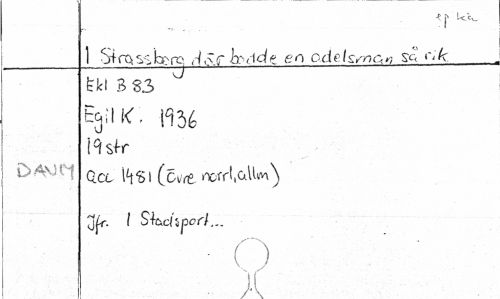 I Strassberg där bodde en adelsman så rik
Ekl B 83
Egil K. 1936
19 str
DAUM acc 1481 (Övre norrl, allm)
Jfr. I Stadsport...